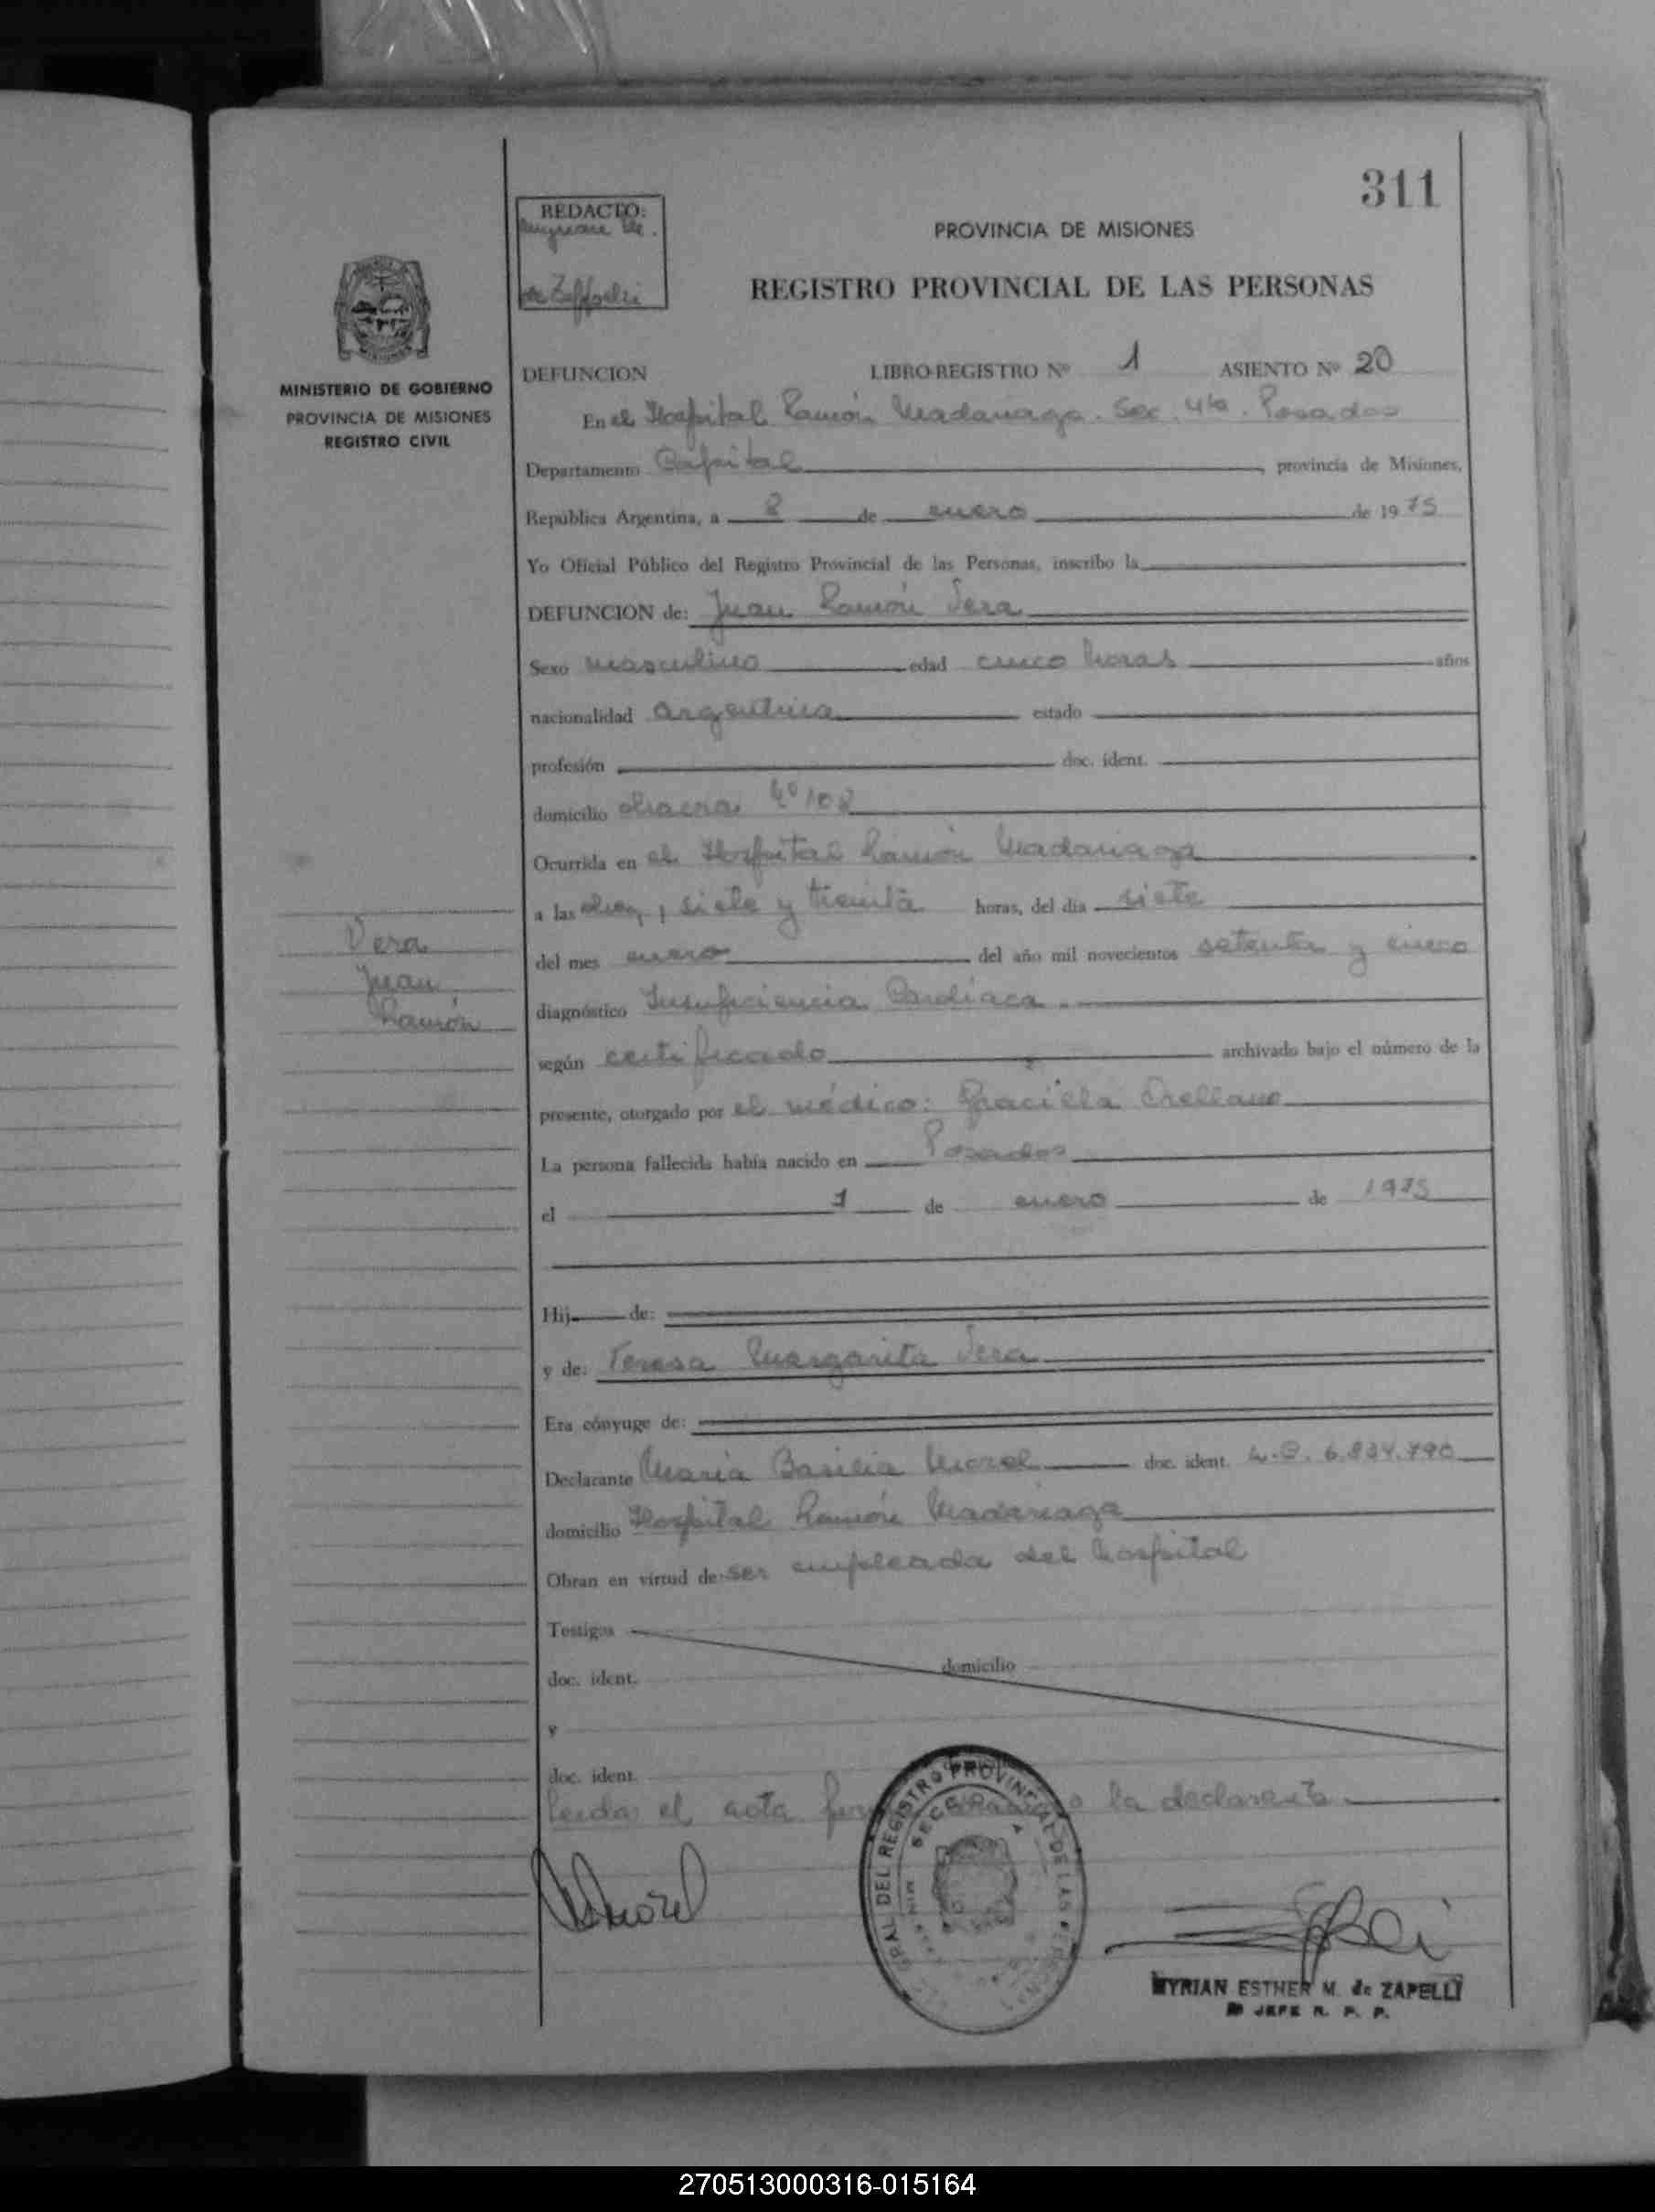 311
REDACTO:
de Zappelli
PROVINCIA DE MISIONES
REGISTRO PROVINCIAL DE LAS PERSONAS
MINISTERIO DE GOBIERNO
PROVINCIA DE MISIONES
REGISTRO CIVIL
DEFUNCION LIBRO-REGISTRO Nº 1 ASIENTO Nº 20
En el Hospital Ramón Madariaga. Sec. 4ta. Posadas
Departamento Capital, provincia de Misiones,
República Argentina, a 8 de enero de 1975
Yo Oficial Público del Registro Provincial de las Personas, inscribo la
DEFUNCION de: Juan Ramón Vera
Sexo masculino edad cinco horas años
nacionalidad argentina estado
profesión doc. ident.
domicilio chacra
Ocurrida en el Hospital Ramón Madariaga
a las diez y siete y treinta horas, del día siete
del mes enero del año mil novecientos setenta y cinco
Vera
Juan
Ramón
diagnóstico Insuficiencia Cardíaca
según certificado archivado bajo el número de la
presente, otorgado por el médico: Graciela Orellano
La persona fallecida había nacido en Posadas
el de enero de 1975
Hij de:
y de: Teresa Margarita Vera
Era cónyuge de:
Declarante María Basilia Morel doc. ident. L.C. 6.834.790
domicilio Hospital Ramón Madariaga
Obran en virtud de ser empleada del hospital
Testigos
doc. ident. domicilio
y
doc. ident.
Leída el acta la declarante
GRAL DEL REGISTRO PROVINCIAL DE LAS PERSONAS
Morel
MYRIAN ESTHER M. de ZAPELLI
JEFE R. P. P.
270513000316-015164